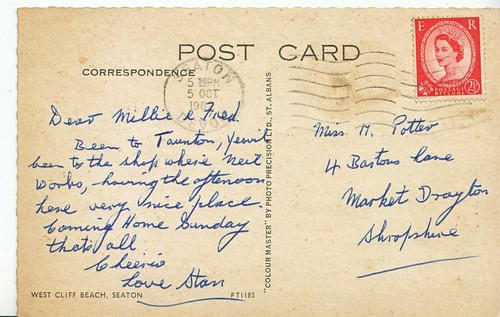 POST CARD
CORRESPONDENCE
SEATON
5 OCT
DEVON
E R
POSTAGE REVENUE
2½D
Dear Millie & Fred
Been to Taunton,
been to the shop where Neil
Works, having the afternoon
here very nice place.
Coming Home Sunday
thats all
Cheerio
Love Stan
WEST CLIFF BEACH, SEATON
PT1185
"COLOUR MASTER" BY PHOTO PRECISION LTD., ST. ALBANS
Miss M. Potter
4 Bastons Lane
Market Drayton
Shropshire